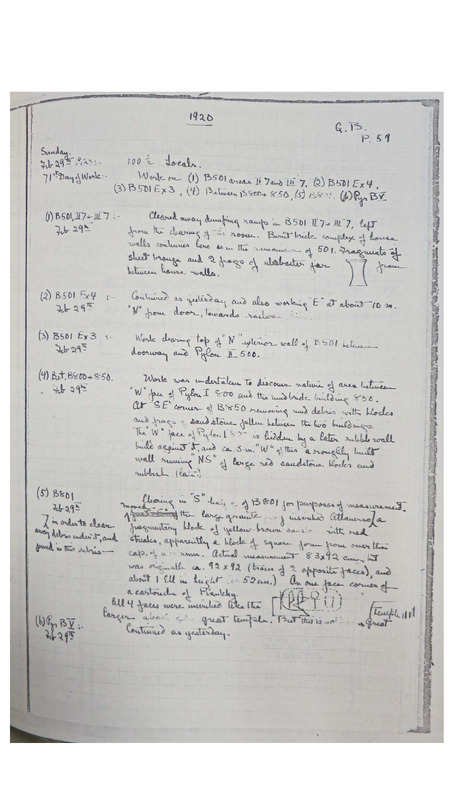 1920
G.B.
P. 59
Sunday,
Feb 29th, 1920:-
100 Locals.
71st Day of Work:-
Work on (1) B501 areas II 7 and III 7, (2) B501 Ex4,
(3) B501 Ex3, (4) Between B800 + 850, (5) B801, (6) Pyr BV.
(1) B501, II7 + III7 :-
Feb 29th
Cleared away dumping ramps in B501 II7 + III7, left
from the clearing of the rooms. Burnt brick complex of house
walls continues here as in the remainder of 501. Fragments of
sheet bronze and 2 frags of alabaster jar from
between house walls.
(2) B501 Ex4 :-
Feb 29th
Continued as yesterday and also working "E" at about 10 m.
"N" from door, towards
(3) B501 Ex3 :-
Feb 29th
Work clearing top of "N" exterior wall of B501 between
doorway and Pylon II 500.
(4) Bet. B800 + 850.
Feb 29th
Work was undertaken to discover nature of area between
"W" face of Pylon I 800 and the mud brick building 850.
At "SE" corner of B850 removing mud debris with blocks
and frags of sandstone fallen between the two buildings.
The "W" face of Pylon I 800 is hidden by a later rubble wall
built against it, and ca. 3 m. "W" of this a roughly built
wall running "NS" of large red sandstone blocks and
rubbish (late?)
(5) B801
Feb 29th
Clearing in "S" of B801 for purposes of measurement,
moved
the large granite a
in order to clear
away debris under it, and
found in the debris
fragmentary block of yellow brown with red
streaks, apparently a block of square form from over the
cap. of column. Actual measurement 83 x 92 cm, it
was originally ca. 92 x 92 (traces of 2 opposite faces), and
about 1 Ell in height (ca 52 cm.) On one face corner of
a cartouche of Piankhy
All 4 faces were inscribed like the
larger great temple. But this is
Great
Temple
(6) Pyr BV :-
Feb 29th
Continued as yesterday.